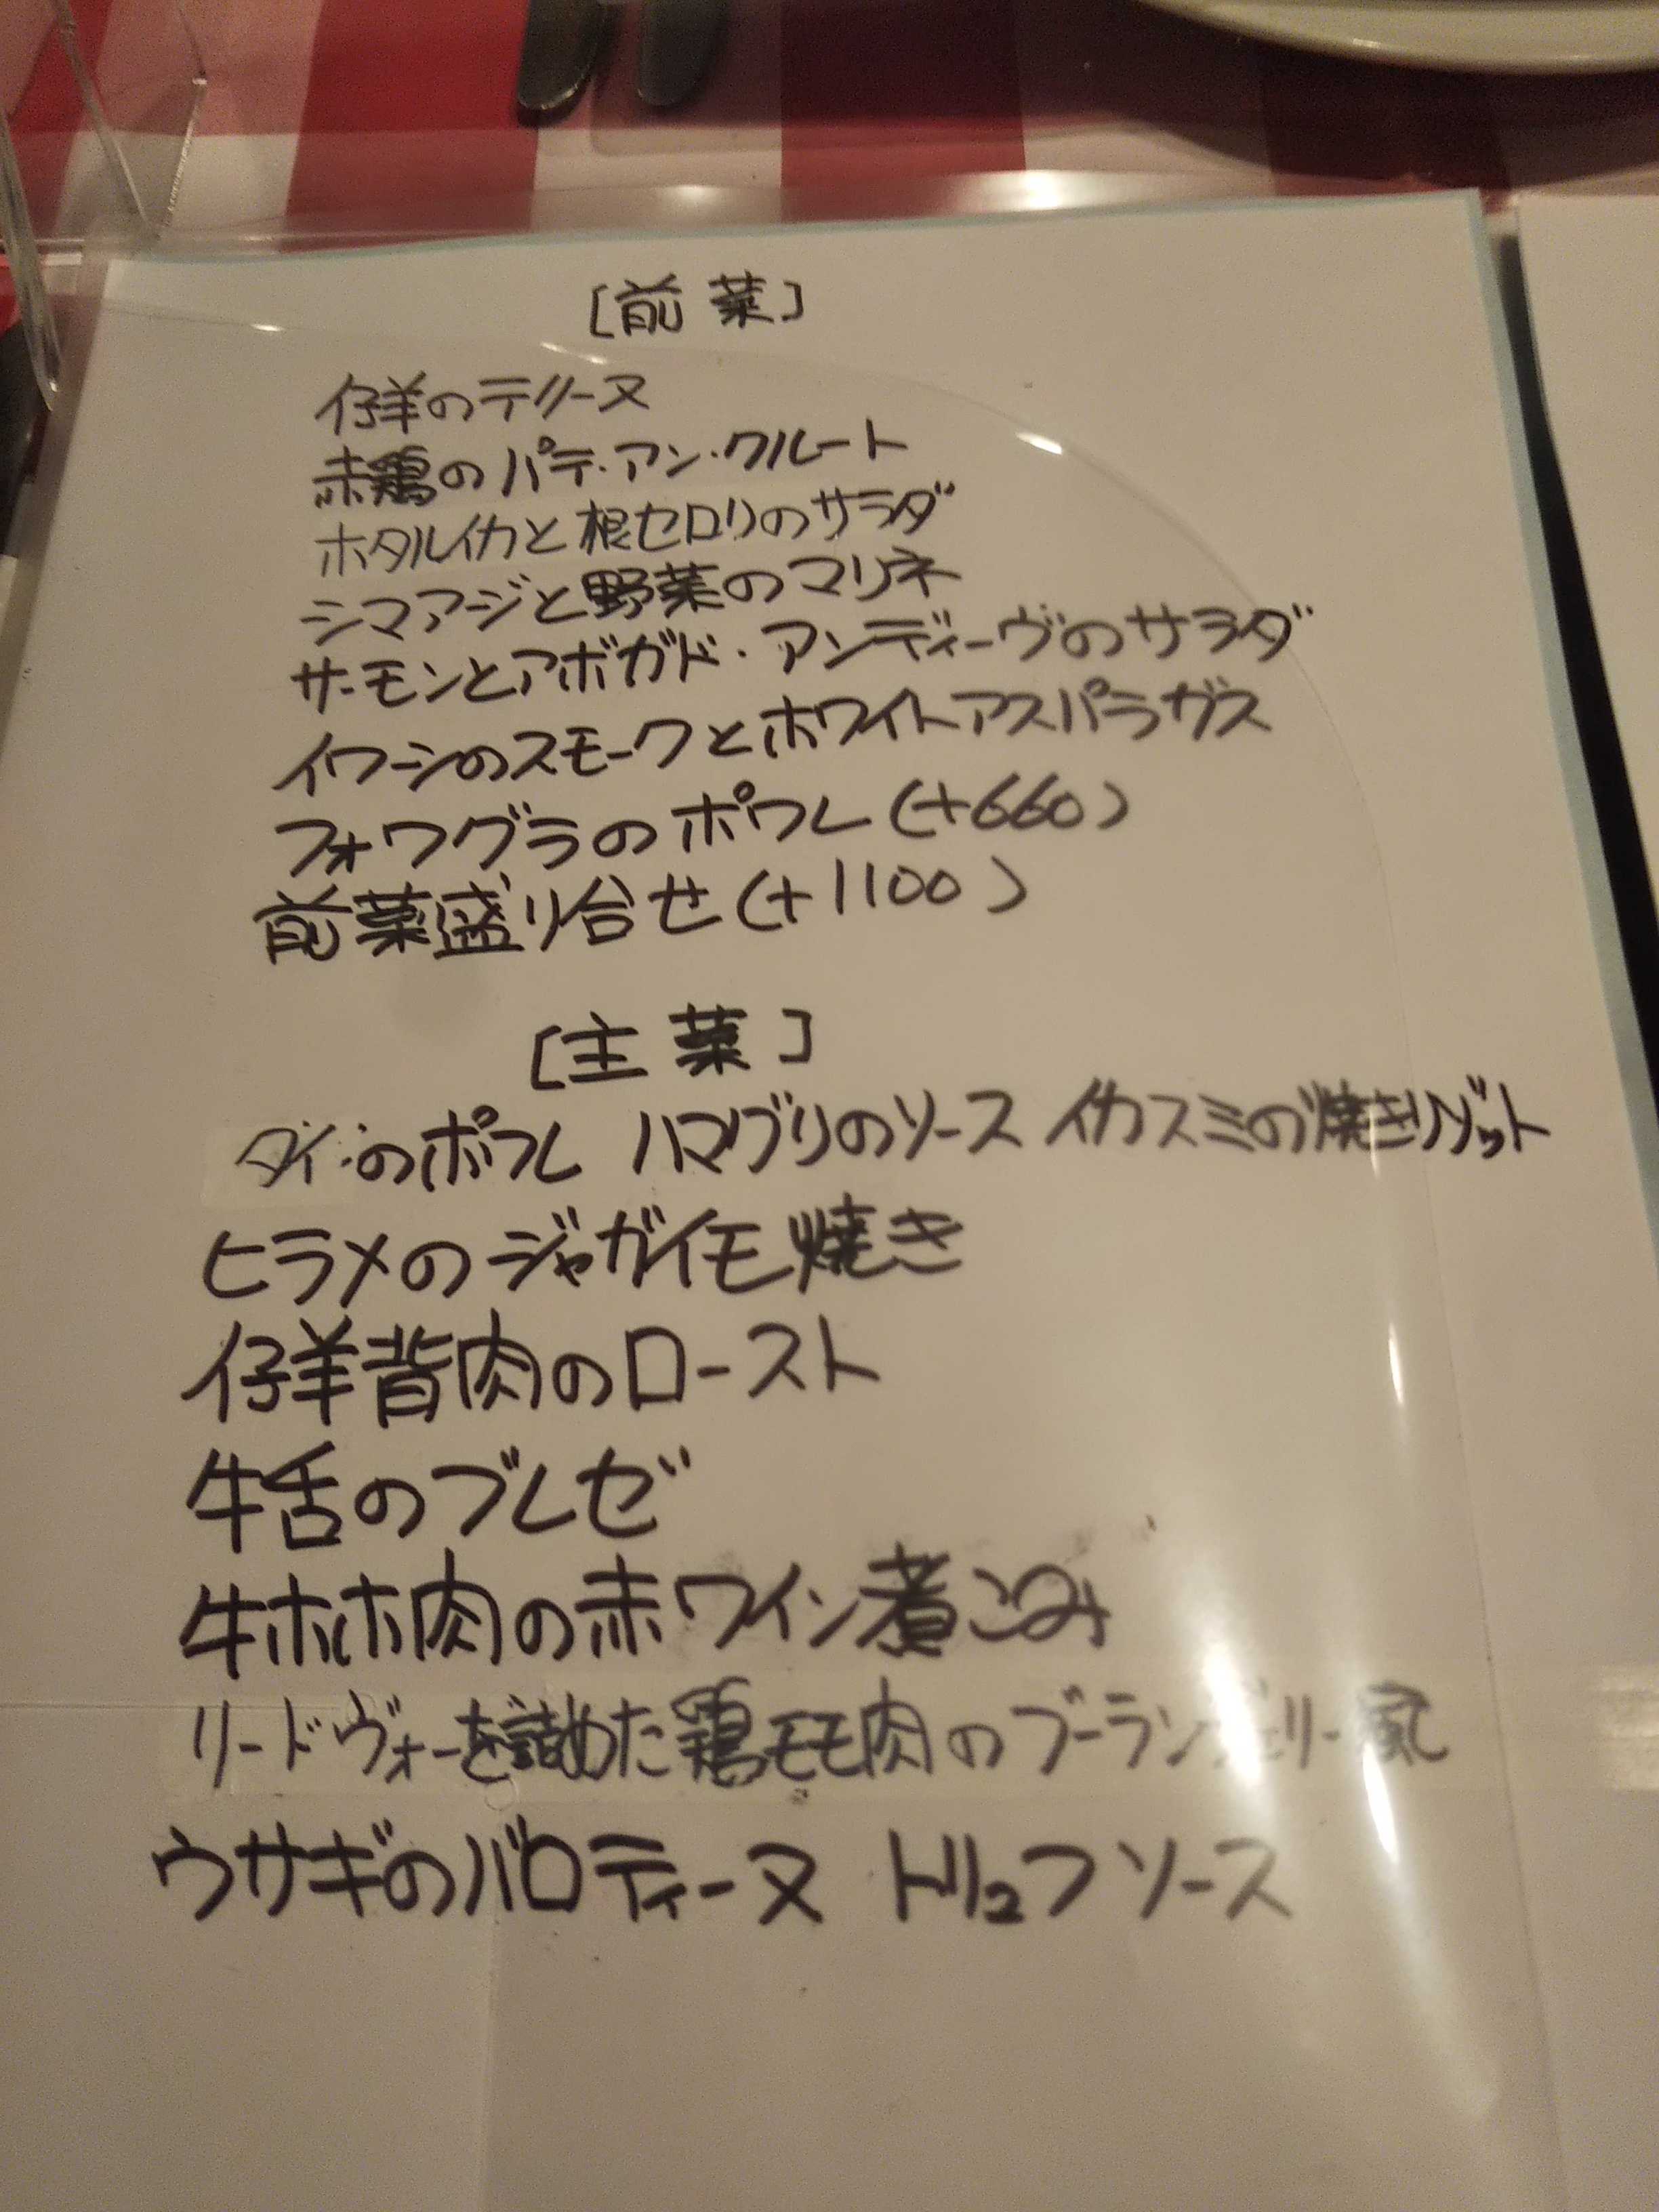 [前菜]
仔羊のテリーヌ
赤鶏のパテ・アン・クルート
ホタルイカと根セロリのサラダ
シマアジと野菜のマリネ
サーモンとアボガド・アンディーヴのサラダ
イワシのスモークとホワイトアスパラガス
フォワグラのポワレ(+660)
前菜盛り合せ(+1100)
[主菜]
タイのポワレ ハマグリのソース イカスミの焼きリゾット
ヒラメのジャガイモ焼き
仔羊背肉のロースト
牛舌のブレゼ
牛ホホ肉の赤ワイン煮こみ
リードヴォーを詰めた鶏モモ肉のブーランジェリー風
ウサギのバロティーヌ トリュフソース